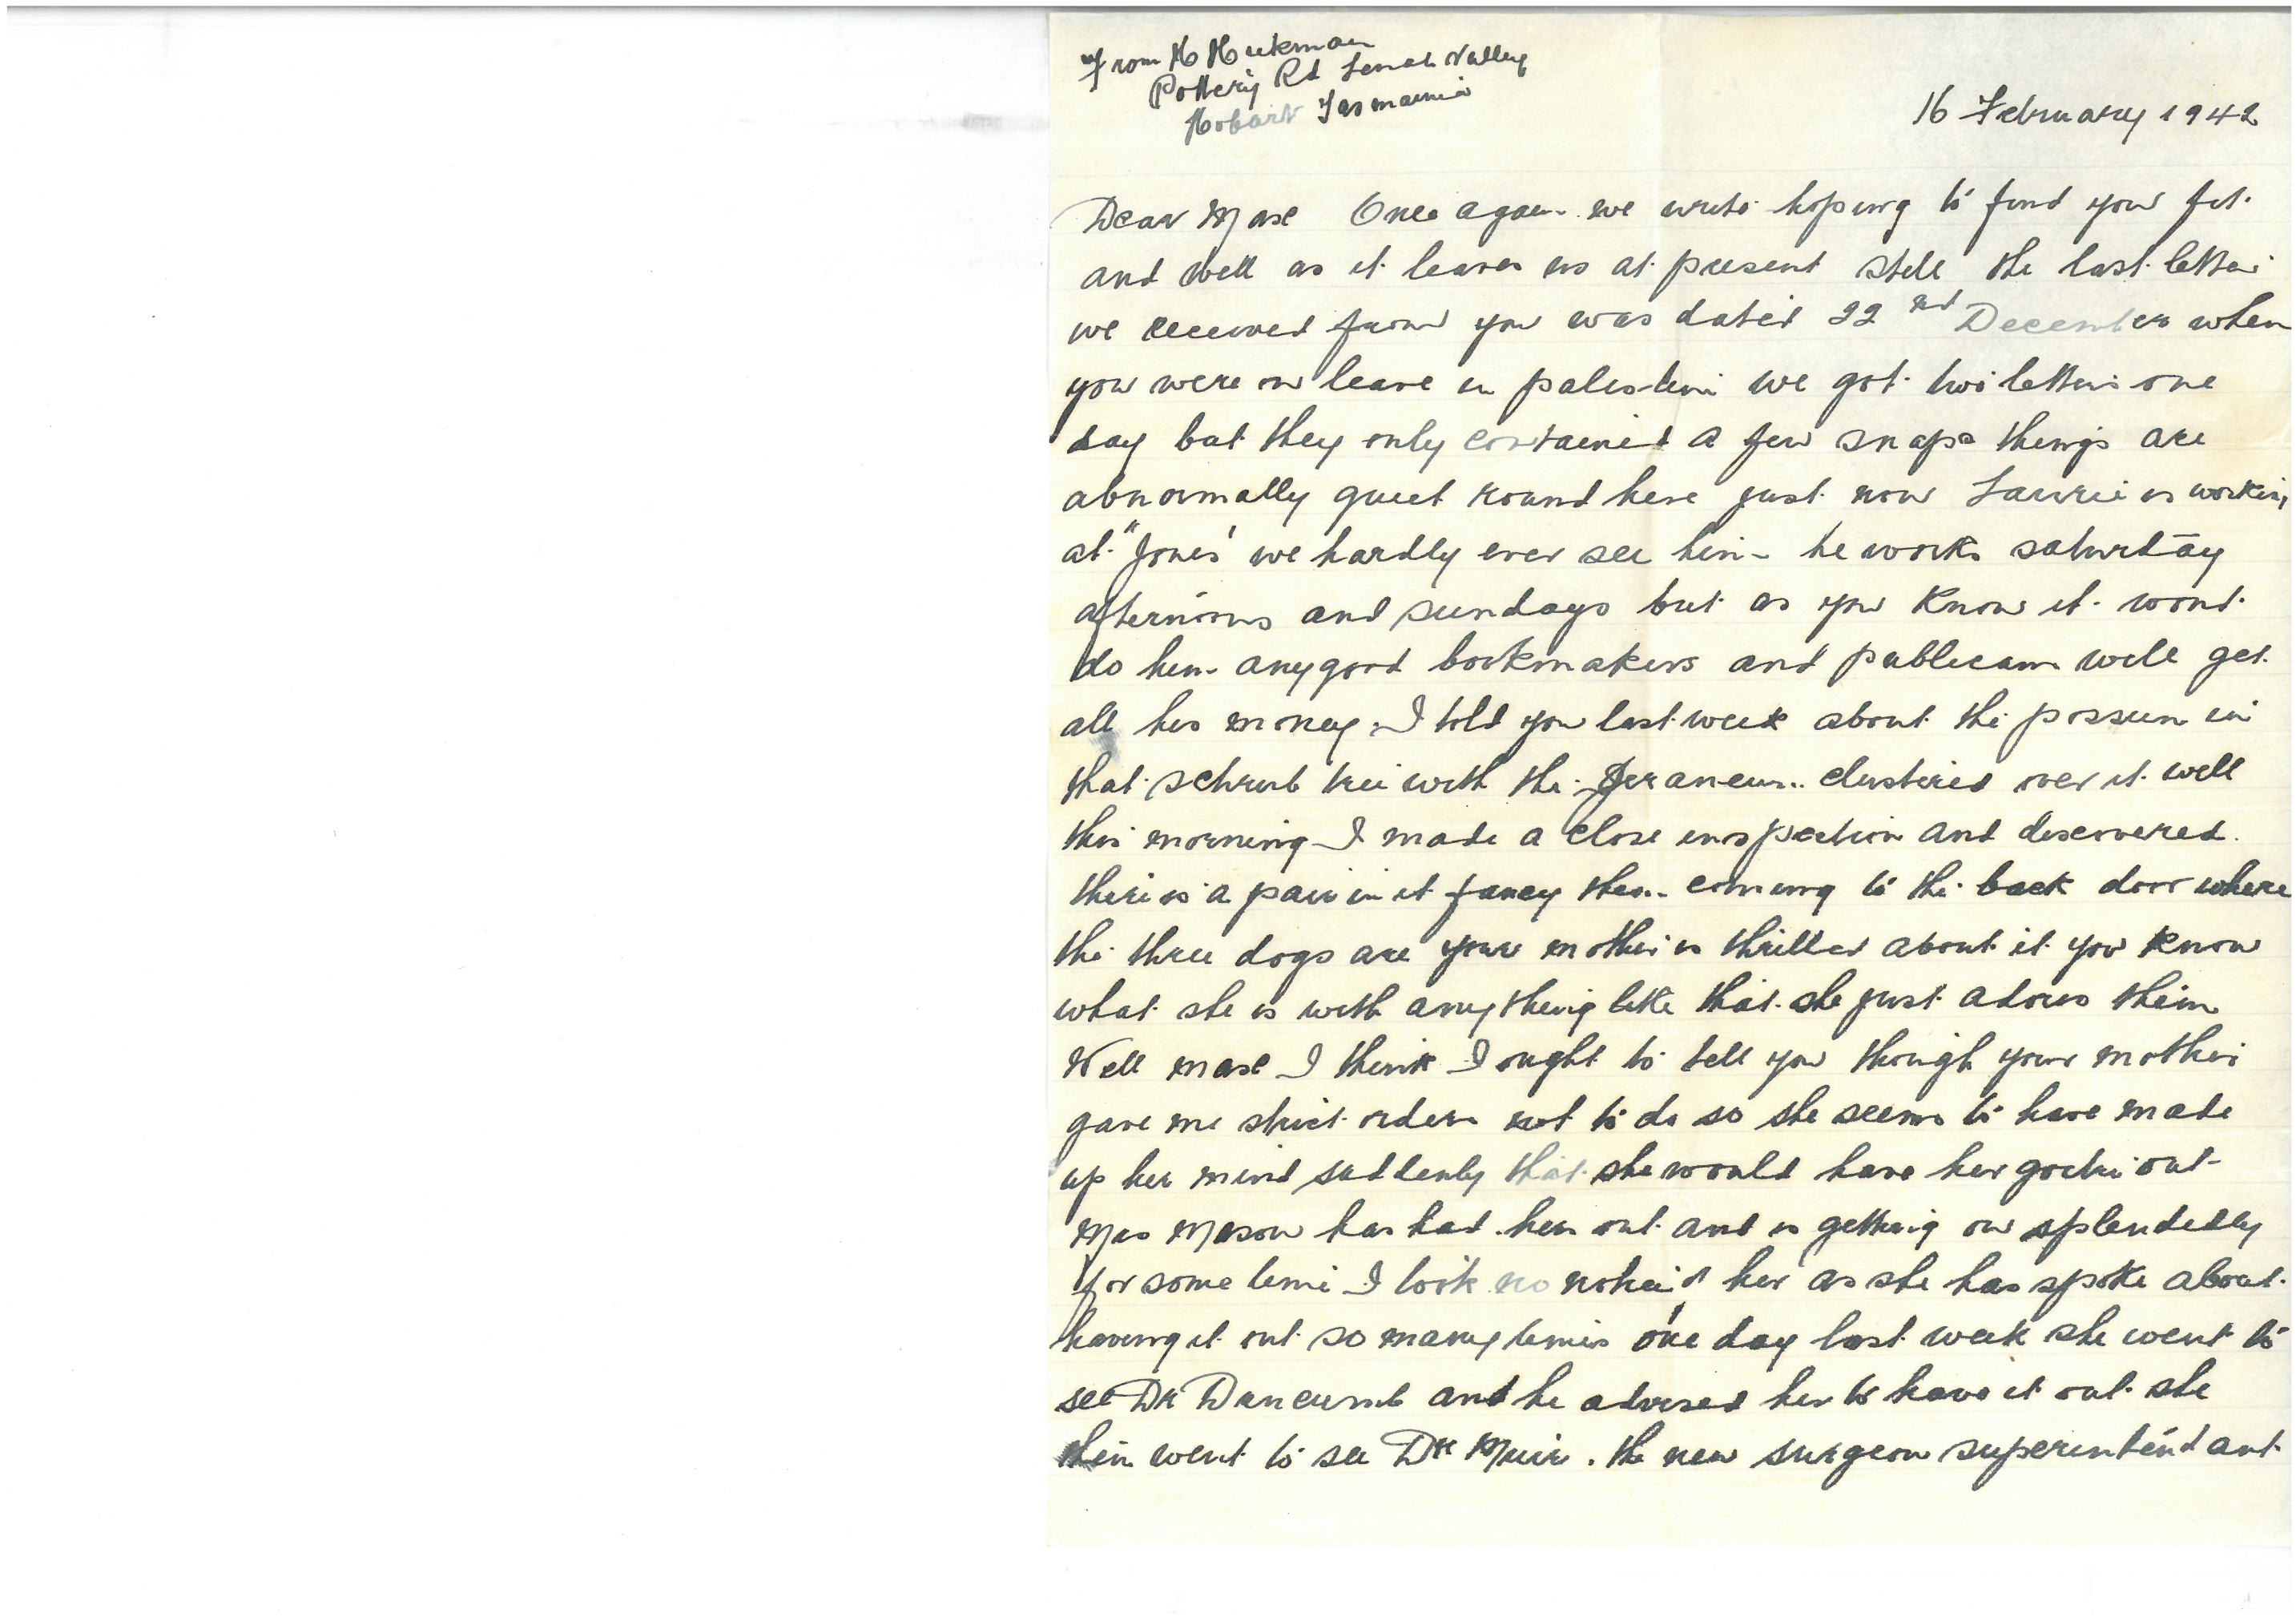 From H Hickman
Pottery Rd Lenah Valley
Hobart Tasmania
16 February 1942
Dear Mase Once again we write hoping to find you fit
and well as it leaves us at present still the last letter
we received from you was dated 22nd December when
you were on leave in palestine we got two letters one
day but they only contained a few snaps things are
abnormally quiet round here just now Lawrie is working
at "Jones' we hardly ever see him he works saturday
afternoons and sundays but as you know it wont
do him any good bookmakers and publicans will get
all his money I told you last week about the possum in
that schrub tree with the Geranium clustered over it well
this morning I made a close inspection and discovered
there is a pair in it fancy them coming to the back door where
the three dogs are your mother is thrilled about it you know
what she is with anything like that she just adores them
Well mase I think I ought to tell you though your mother
gave me strict orders not to do so she seems to have made
up her mind suddenly that she would have her goitre out
Mrs Mason has had hers out and is getting on splendidly
for some time I took no notice of her as she has spoke about
having it out so many times one day last week she went to
see Dr Duncumb and he advised her to have it out she
then went to see Dr Muir. the new surgeon superintendant